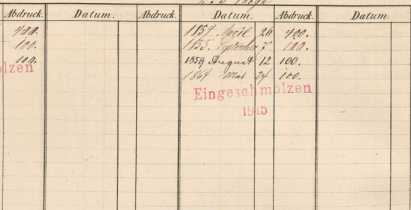 Abdruck. Datum. Abdruck. Datum. Abdruck. Datum.
400. 1857 April 26 400.
100. 1858 September 7 100.
100. 1859 August 12 100.
1861 Mai 100.
olzen
Eingeschmolzen
1915